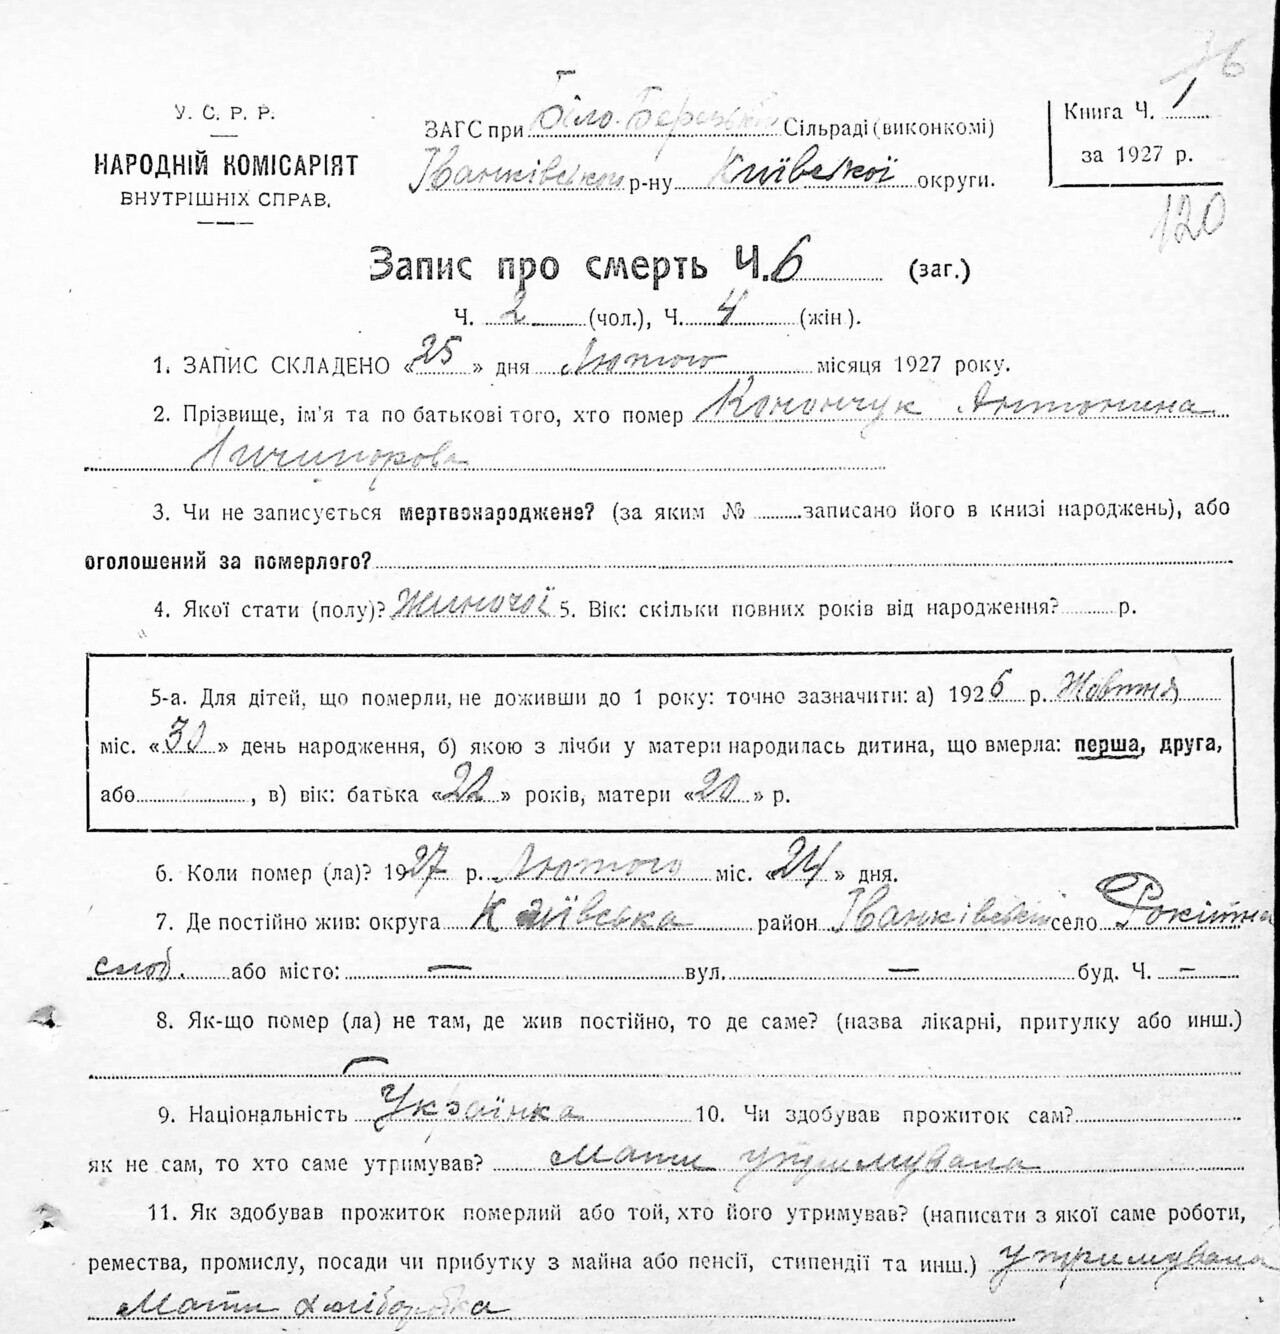 76
У. С. Р. Р.
НАРОДНІЙ КОМІСАРІЯТ
ВНУТРІШНІХ СПРАВ.
ЗАГС при Біло-Березькій Сільраді (виконкомі)
Іванківському р-ну Київської округи.
Книга Ч. 1
за 1927 р.
120
Запис про смерть Ч. 6 (заг.)
Ч. 2 (чол.), Ч. 4 (жін).
1. ЗАПИС СКЛАДЕНО «25» дня Лютого місяця 1927 року.
2. Прізвище, ім'я та по батькові того, хто помер Конончук Антонина
Ничипорова
3. Чи не записується мертвонароджене? (за яким № записано його в книзі народжень), або
оголошений за померлого?
4. Якої стати (полу)? Жиночої 5. Вік: скільки повних років від народження? р.
5-а. Для дітей, що померли, не доживши до 1 року: точно зазначити: а) 1926 р. Жовтня
міс. «30» день народження, б) якою з лічби у матери народилась дитина, що вмерла: перша, друга,
або , в) вік: батька «22» років, матери «20» р.
6. Коли помер (ла)? 1927 р. Лютого міс. «24» дня.
7. Де постійно жив: округа Київська район Іванківськ село Рокітна
слоб. або місто: — вул. — буд. Ч. —
8. Як-що помер (ла) не там, де жив постійно, то де саме? (назва лікарні, притулку або инш.)
—
9. Національність Українка 10. Чи здобував прожиток сам?
як не сам, то хто саме утримував? Мати утримувала
11. Як здобував прожиток померлий або той, хто його утримував? (написати з якої саме роботи,
ремества, промислу, посади чи прибутку з майна або пенсії, стипендії та инш.) утримувала
Мати хліборобка